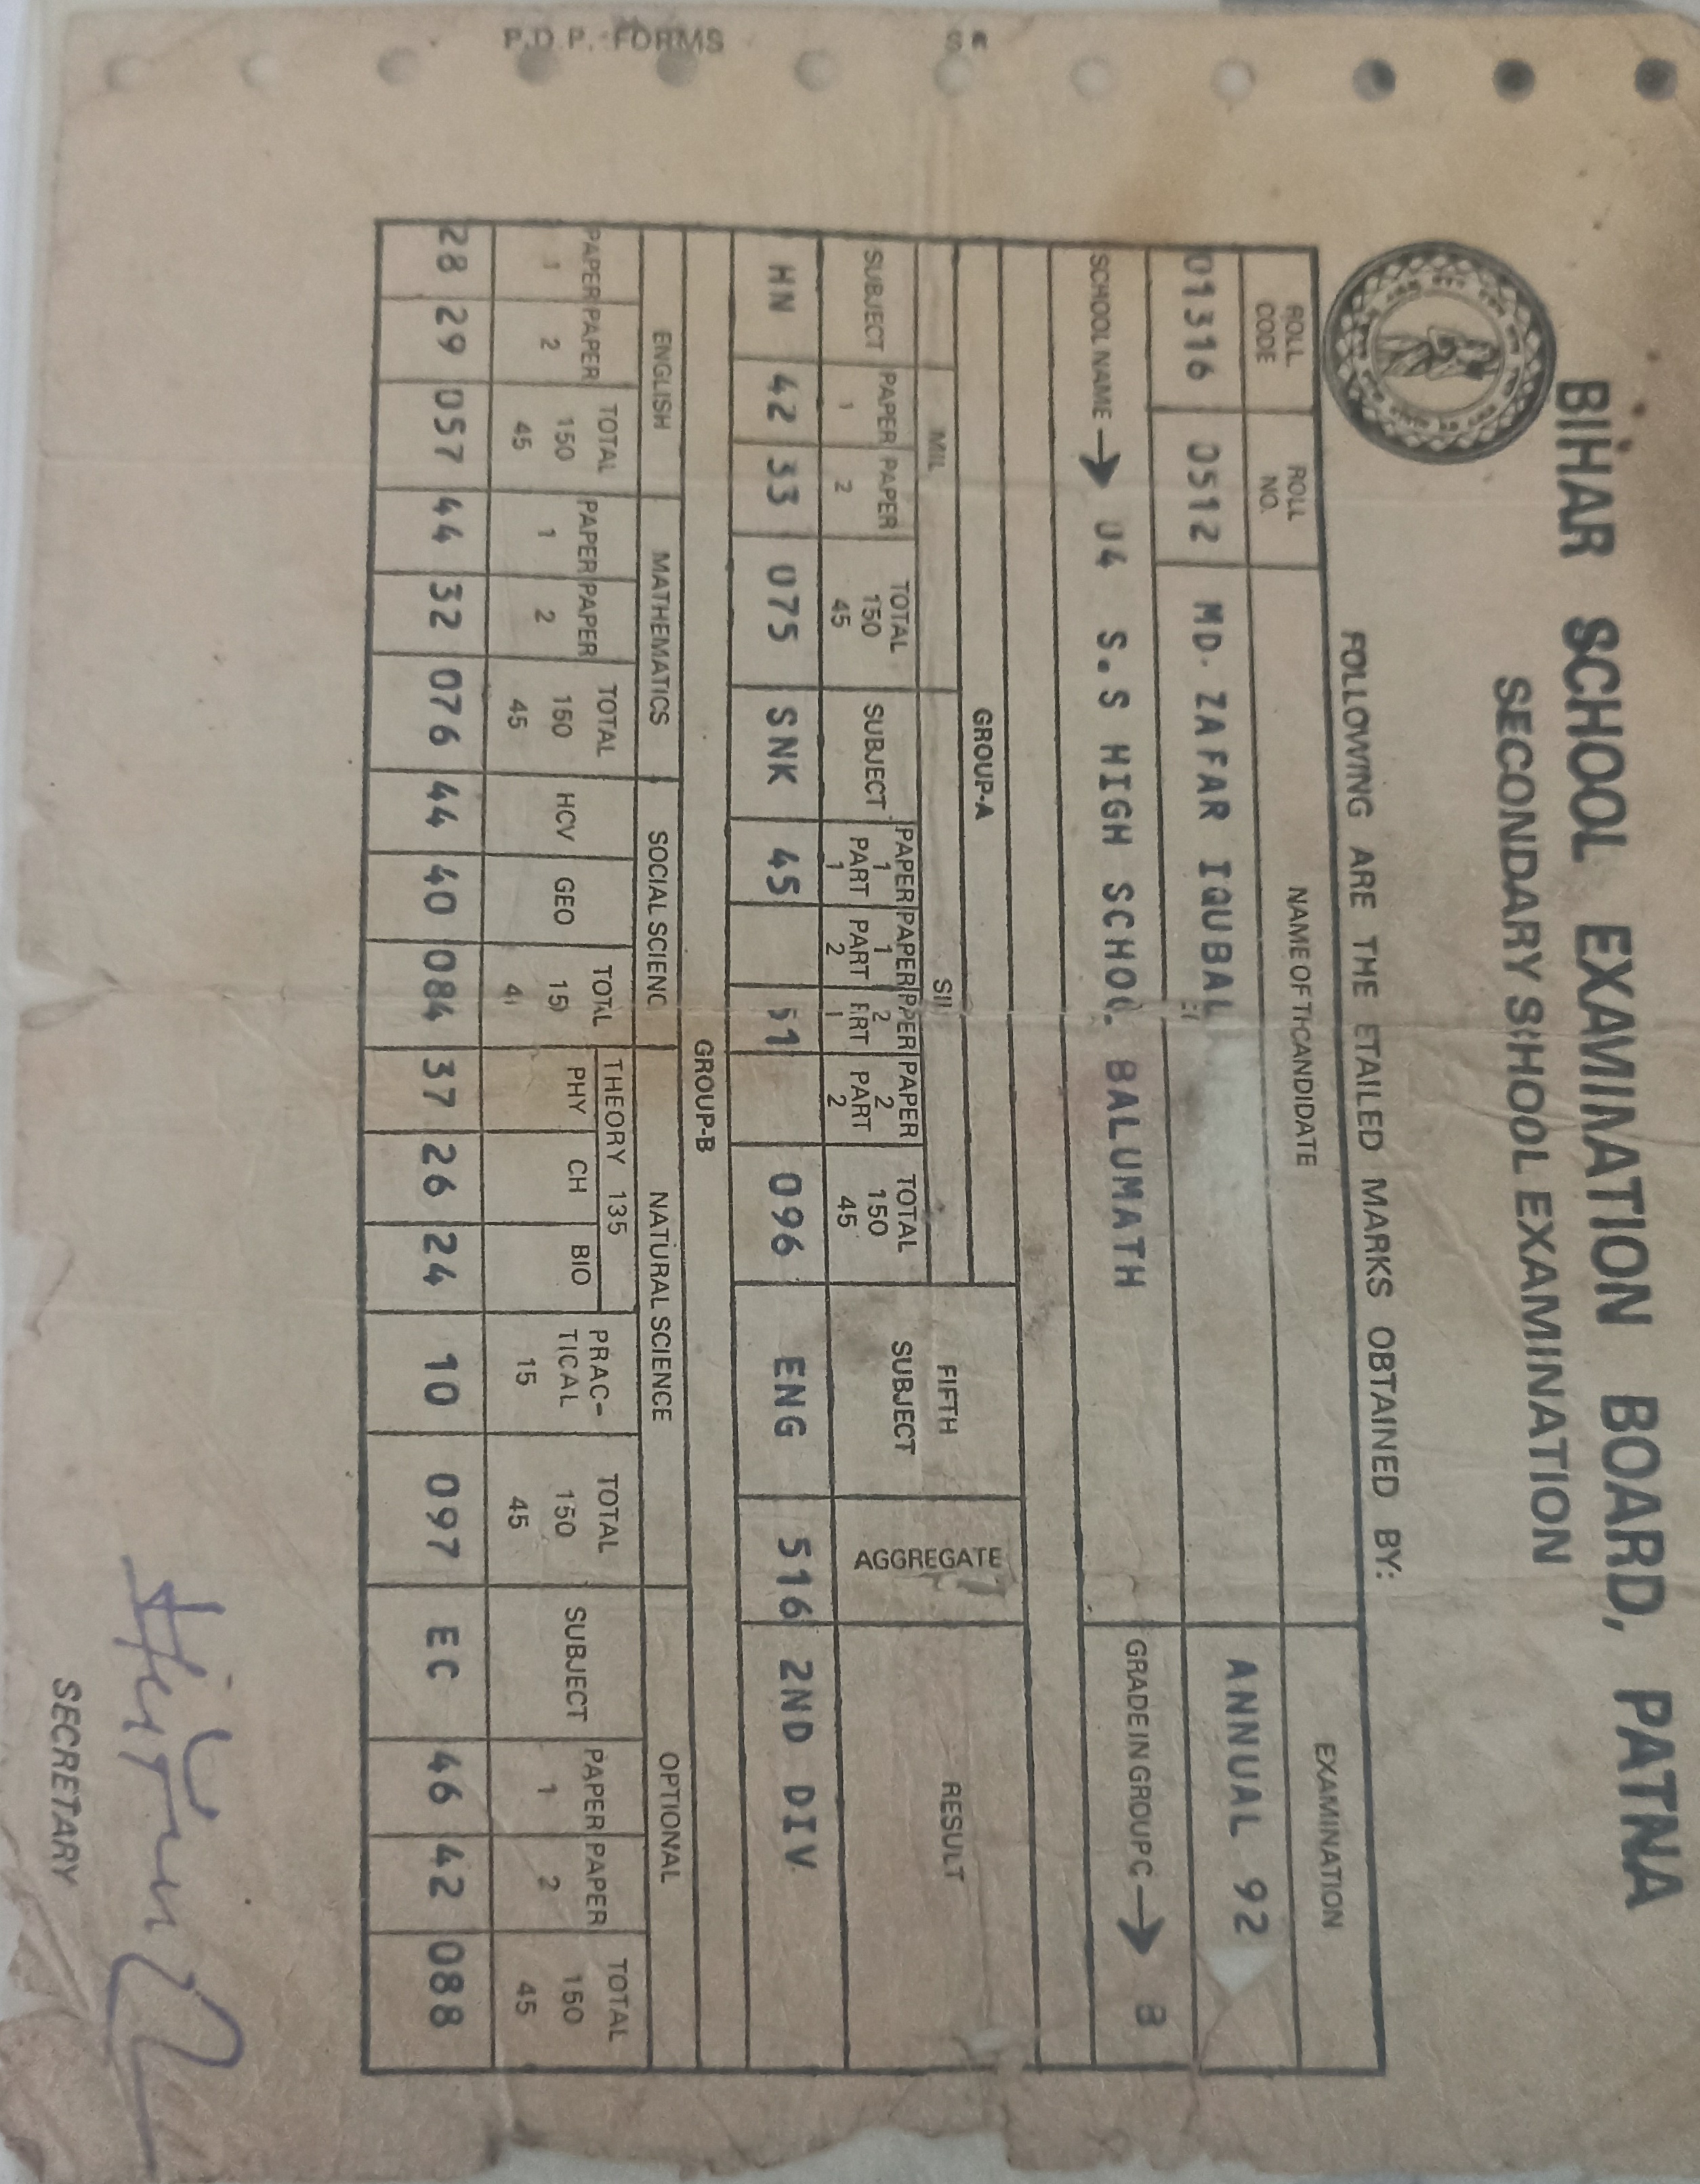 P.D.P. FORMS
BIHAR SCHOOL EXAMINATION BOARD, PATNA
SECONDARY SCHOOL EXAMINATION
FOLLOWING ARE THE ETAILED MARKS OBTAINED BY:
ROLL CODE ROLL NO. NAME OF TH CANDIDATE EXAMINATION
01316 0512 MD. ZAFAR IQUBAL ANNUAL 92
SCHOOL NAME → 04 S.S HIGH SCHOO. BALUMATH GRADE IN GROUP C → B
GROUP-A FIFTH SUBJECT AGGREGATE RESULT
MIL SIL
SUBJECT PAPER 1 PAPER 2 TOTAL 150 45 SUBJECT PAPER 1 PART 1 PAPER 1 PART 2 PAPER 2 PRT 1 PAPER 2 PART 2 TOTAL 150 45
HN 42 33 075 SNK 45 51 096 ENG 516 2ND DIV
GROUP-B
ENGLISH MATHEMATICS SOCIAL SCIENC NATURAL SCIENCE OPTIONAL
PAPER 1 PAPER 2 TOTAL 150 45 PAPER 1 PAPER 2 TOTAL 150 45 HCV GEO TOTAL 15 4 THEORY 135 PHY CH BIO PRAC-TICAL 15 TOTAL 150 45 SUBJECT PAPER 1 PAPER 2 TOTAL 150 45
28 29 057 44 32 076 44 40 084 37 26 24 10 097 EC 46 42 088
SECRETARY